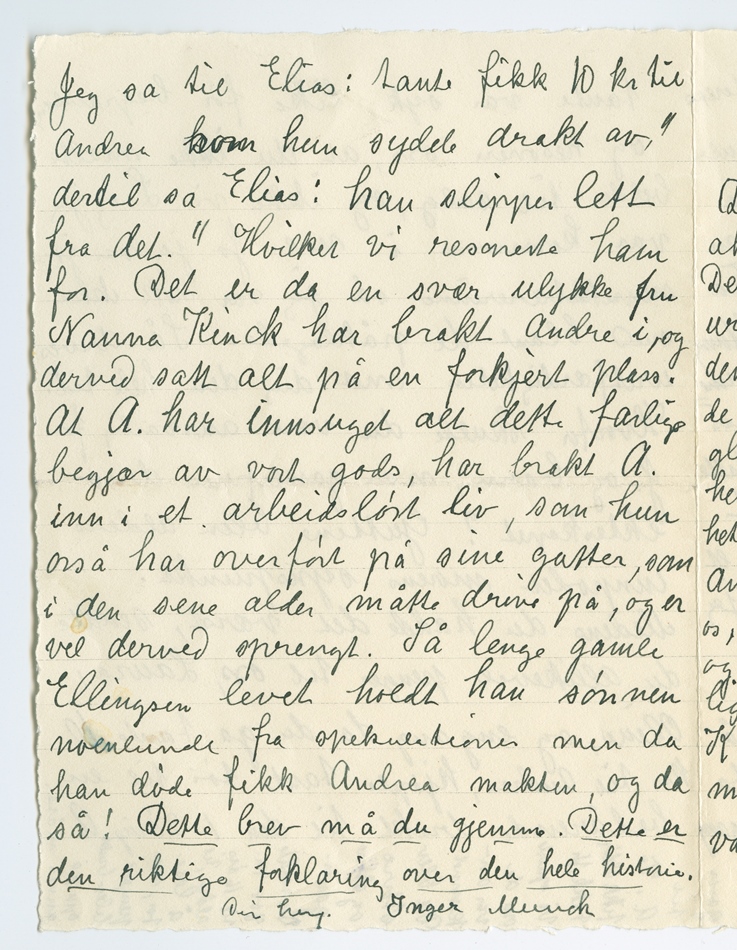 Jeg sa til Elias: tante fikk 10 kr til
Andrea som hun sydde drakt av,"
dertil sa Elias: han slipper lett
fra det." Hvilket vi resonerte ham
for. Det er da en svær ulykke fru
Nanna Kinck har brakt Andre i, og
derved satt alt på en forkjert plass.
At A. har innsuget alt dette farlige
begjær av vort gods, har brakt A.
inn i et arbeidsløst liv, som hun
også har overført på sine gutter, som
i den sene alder måtte drive på, og er
vel derved sprengt. Så lenge gamle
Ellingsen levet holdt han sønnen
noenlunde fra spekulationer men da
han døde fikk Andrea makten, og da
så! Dette brev må du gjemme. Dette er
den riktige forklaring over den hele historie.
Din heng. Inger Munch
De
de
m